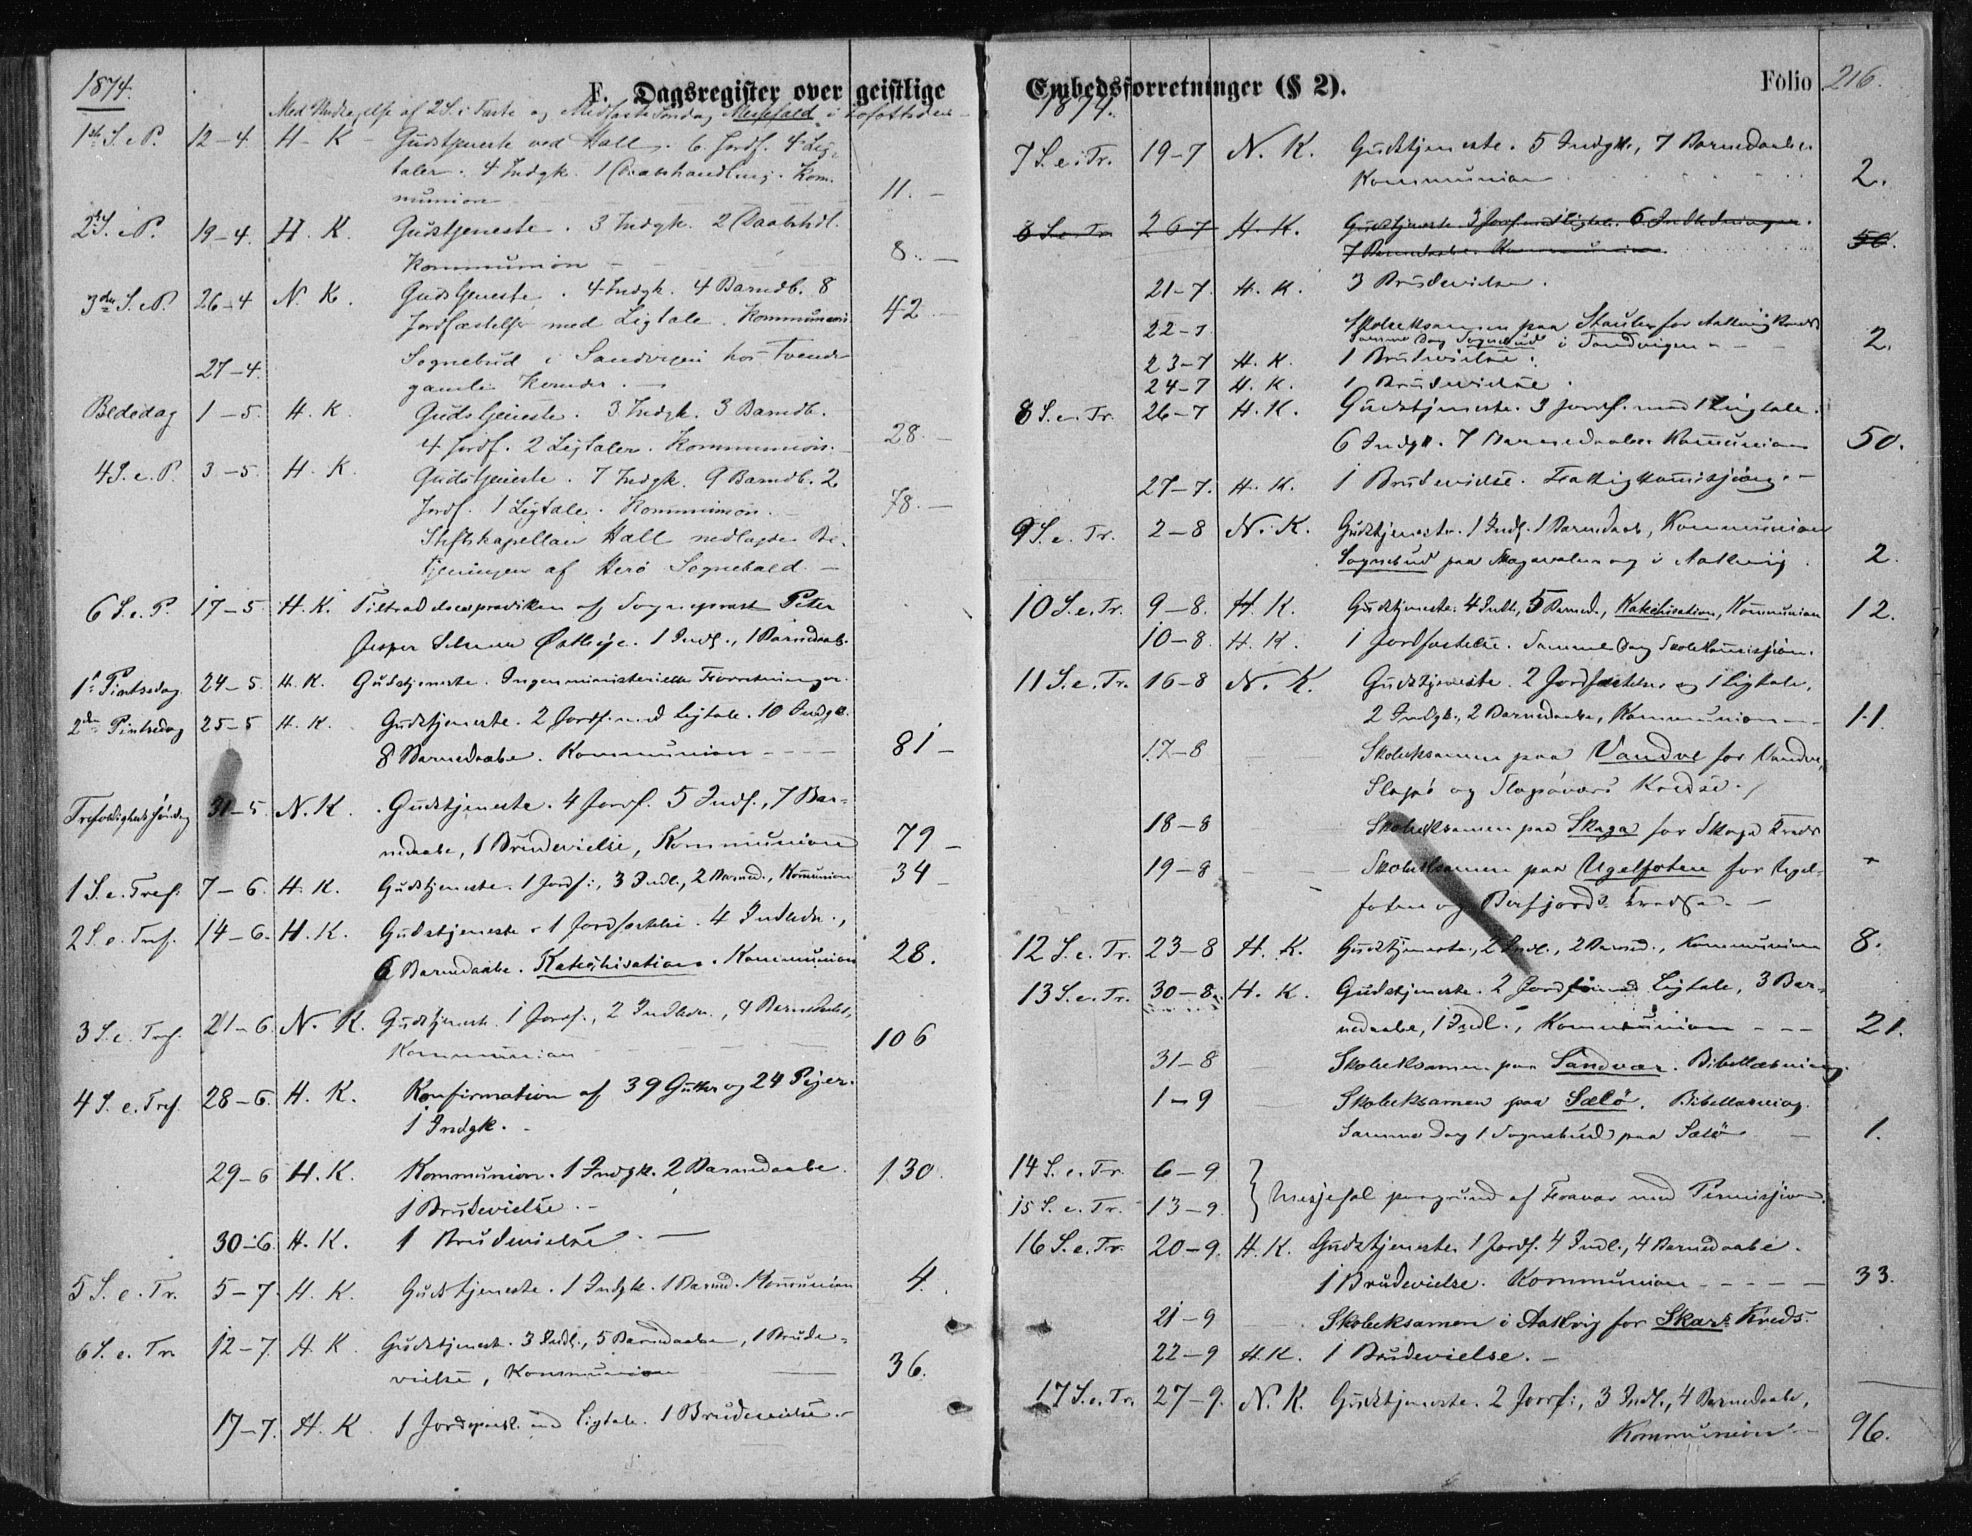 1874.
F. Dagsregister over geistlige
Med Undtagelse af 2 S. i Faste og Midfaste Søndag Messefald i Lofottiden
1ste S. e. P. 12-4. H. K. Gudstjeneste ved Hall. 6 Jordf. 4 Lig-
taler. 4 Indgk. 1 Daabshandling. Kom-
munion 11.
2 S. e. P. 19-4. H. K. Gudstjeneste. 3 Indgk. 2 Daabshdl.
Kommunion 8.
3die S. e. P. 26-4 N. K. Gudstjeneste. 4 Indgk. 4 Barndb. 8
Jordfæstelser med Ligtale. Kommunion 42
27-4. Sognebud i Sandvigen hos Tvende
gamle Koner.
Bededag 1-5. H. K. Gudstjeneste. 3 Indgk. 3 Barndb.
4 Jordf. 2 Ligtaler. Kommunion. 28.
4 S. e. P. 3-5. H. K. Gudstjeneste. 7 Indgk. 9 Barndb. 2
Jordf. 1 Ligtale. Kommunion. 78.
Stiftskapellan Hall nedlagde Be-
tjeningen af Herø Sognekald
6 S. e. P. 17-5. H. K. Tiltrædelsespræviken af Sognepræst Peter
Jesper Østbye. 1 Indl., 1 Barnedaab.
1ste Pintsedag 24-5. H. K. Gudstjeneste. Ingen ministerielle Forretninger.
2den Pintsedag 25-5 H. K. Gudstjeneste. 2 Jordf. med Ligtale. 10 Indgk.
8 Barnedaabe. Kommunion 81
Trefoldigheds Søndag 31-5. N. K. Gudstjeneste. 4 Jordf. 5 Indl., 7 Bar-
nedaabe, 1 Brudevielse, Kommunion 79
1 S. e. Tref. 7-6. H. K. Gudstjeneste. 1 Jordf., 3 Indl., 2 Barned., Kommunion 34
2 S. e. Tref. 14-6. H. K. Gudstjeneste. 1 Jordfæstelse. 4 Indledn.,
6 Barnedaabe. Katechisation. Kommunion 28.
3 S. e. Tref. 21-6 N. K. Gudstjeneste. 1 Jordf., 2 Indledn., 4 Barnedaabe,
Kommunion 106
4 S. e. Tref. 28-6. H. K. Konfirmation af 39 Gutter og 24 Piger.
1 Indgk.
29-6 H. K. Kommunion. 1 Indgk. 2 Barnedaabe. 130.
1 Brudevielse.
30-6. H. K. 1 Brudevielse.
5 S. e. Tr. 5-7. H. K. Gudstjeneste. 1 Indgk. 1 Barned. Kommunion 4.
6 S. e. Tr. 12-7. H. K. Gudstjenest. 3 Indl., 5 Barnedaabe, 1 Brude-
vielse, Kommunion 36.
17-7. H. K. 1 Jordpaak. med Ligtale. 1 Brudevielse.
Embedsforretninger (§ 2). Folio 216.
1874.
7 S. e. Tr. 19-7 N. K. Gudstjeneste. 5 Indgk., 7 Barnedaabe.
Kommunion 2.
8 S. e. Tr. 26-7 H. K. Gudstjeneste 3 Jordf. med Ligtale. 6 Indledninger.
7 Barnedaabe. Kommunion 50.
21-7. H. K. 3 Brudevielser.
22-7 Skoleeksamen paa for Aakvig Kreds
Samme Dag Sognebud i Sandvigen 2.
23-7 H. K. 1 Brudevielse.
24-7 H. K. 1 Brudevielse.
8 S. e. Tr. 26-7 H. K. Gudstjeneste. 3 Jordf. med 1 Ligtale.
6 Indgk. 7 Barnedaabe Kommunion 50.
27-7. H. K. 1 Brudevielse. Fattigkomisjion.
9 S. e. Tr. 2-8 N. K. Gudstjeneste. 1 Indl. 1 Barnedaab, Kommunion
Sognebud paa og i Aakvig. 2.
10 S. e. Tr. 9-8. H. K. Gudstjeneste. 4 Indl., 5 Barned., Katechisation, Kommunion 12.
10-8. H. K. 1 Jordfæstelse. Samme Dag Skolekomisjion.
11 S. e. Tr. 16-8 N. K. Gudstjeneste. 2 Jordfæstelser og 1 Ligtale.
2 Indgk., 2 Barnedaabe, Kommunion 11.
17-8 Skoleeksamen paa Vandve for Vandve,
Slapø og Slapøvær Kredse.
18-8 Skoleeksamen paa Skaga for Skaga Kreds
19-8 Skoleeksamen paa Ugelfoten for Ugel-
foten og Belfjords Kredse.
12 S. e. Tr. 23-8 H. K. Gudstjeneste, 2 Indl., 2 Barned., Kommunion 8.
13 S. e. Tr. 30-8. H. K. Gudstjeneste. 2 Jordf. med Ligtale, 3 Bar-
nedaabe, 1 Indl., Kommunion 21.
31-8 Skoleeksamen paa Sandvær. Bibellæsning.
1-9 Skoleeksamen paa Sælø. Bibellæsning.
Samme Dag 1 Sognebud paa Sælø 1.
14 S. e. Tr. 6-9
15 S. e. Tr. 13-9. } Mesjefal paagrund af Fravær med Permisjion.
16 S. e. Tr. 20-9. H. K. Gudstjeneste 1 Jordf. 4 Indl., 4 Barnedaabe.
1 Brudevielse. Kommunion 33.
21-9 Skoleeksamen i Aakvig for Skars Kreds.
22-9 H. K. 1 Brudevielse.
17 S. e. Tr. 27-9. N. K. Gudstjeneste. 2 Jordf., 3 Indl., 4 Barnedaabe,
Kommunion 96.